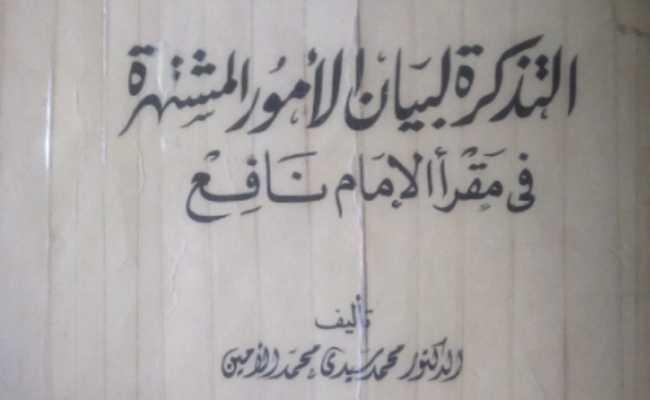 التذكرة لبيان الأمور المشتهرة
في مقرأ الإمام نافع
تأليف
الدكتور محمد سيدي محمد الأمين